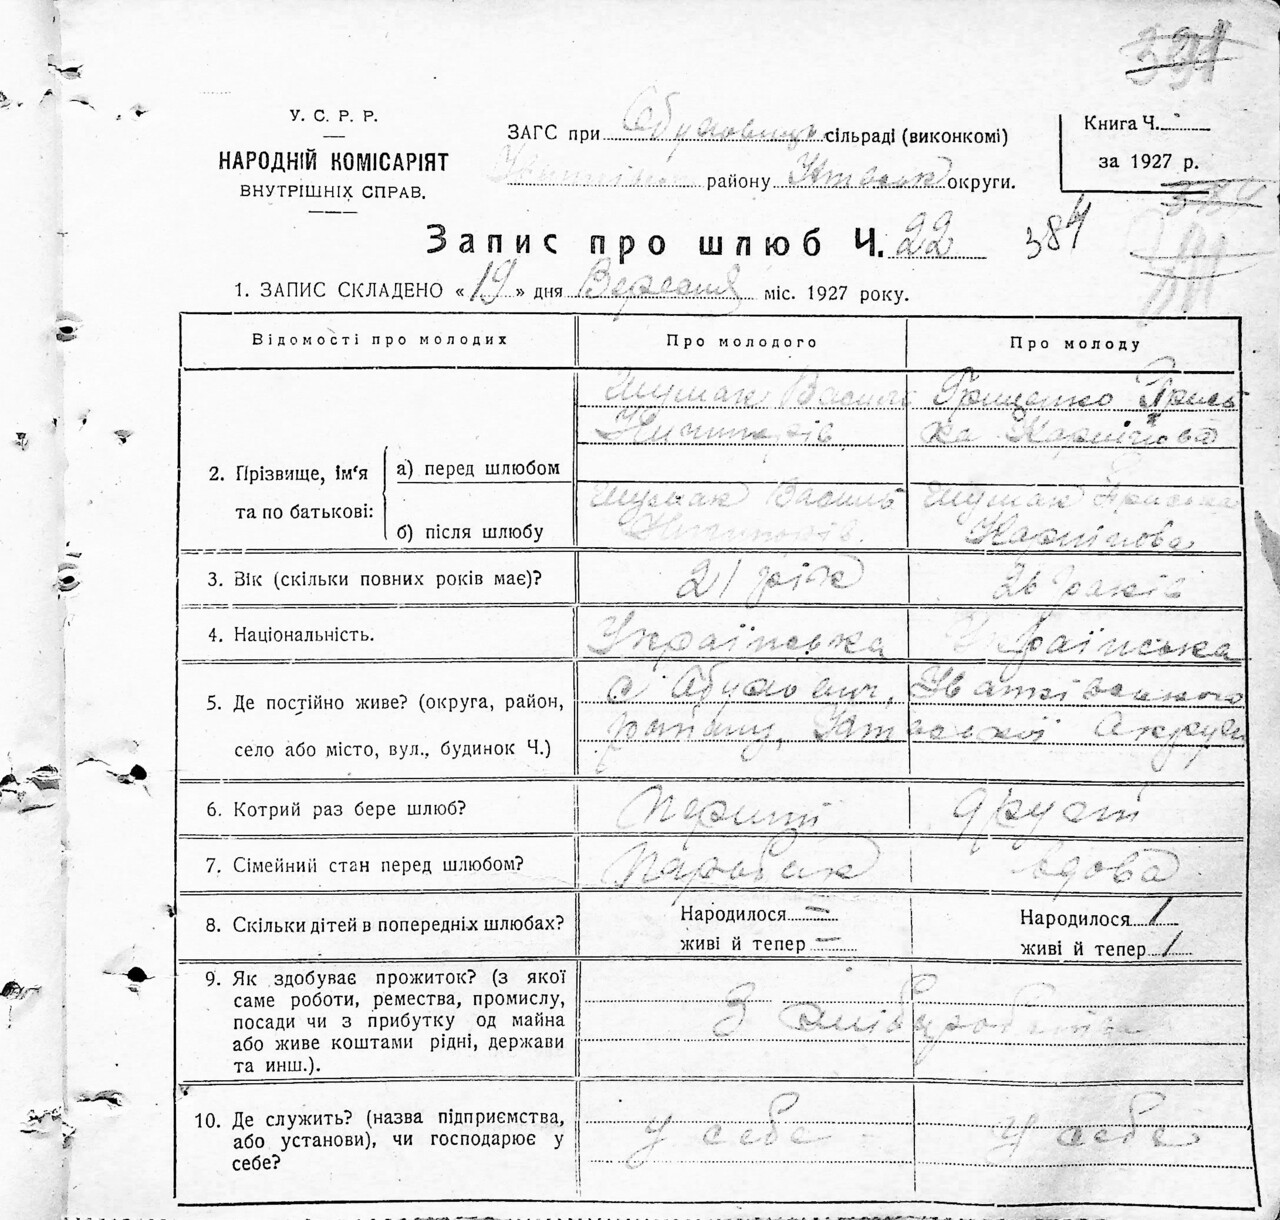 У. С. Р. Р.
НАРОДНІЙ КОМІСАРІЯТ
ВНУТРІШНІХ СПРАВ.
ЗАГС при сільраді (виконкомі)
району округи.
Книга Ч.
за 1927 р.
Запис про шлюб Ч. 22
384
1. ЗАПИС СКЛАДЕНО « 19 » дня Вересня міс. 1927 року.
Відомості про молодих Про молодого Про молоду
2. Прізвище, ім'я та по батькові:
а) перед шлюбом
Шумак Василь Грищенко Прись-
ка Карпівна
б) після шлюбу
Шумак Василь Шумак Приська
Карпівна
3. Вік (скільки повних років має)? 21 рік 26 років
4. Національність. Українська Українська
5. Де постійно живе? (округа, район,
село або місто, вул., будинок Ч.)
с
району, округи
6. Котрий раз бере шлюб? Перший другий
7. Сімейний стан перед шлюбом? Парубок вдова
8. Скільки дітей в попередніх шлюбах? Народилося – Народилося 1
живі й тепер – живі й тепер 1
9. Як здобуває прожиток? (з якої
саме роботи, ремества, промислу,
посади чи з прибутку од майна
або живе коштами рідні, держави
та инш.).
З хліборобства
10. Де служить? (назва підприємства,
або установи), чи господарює у
себе?
у себе у себе